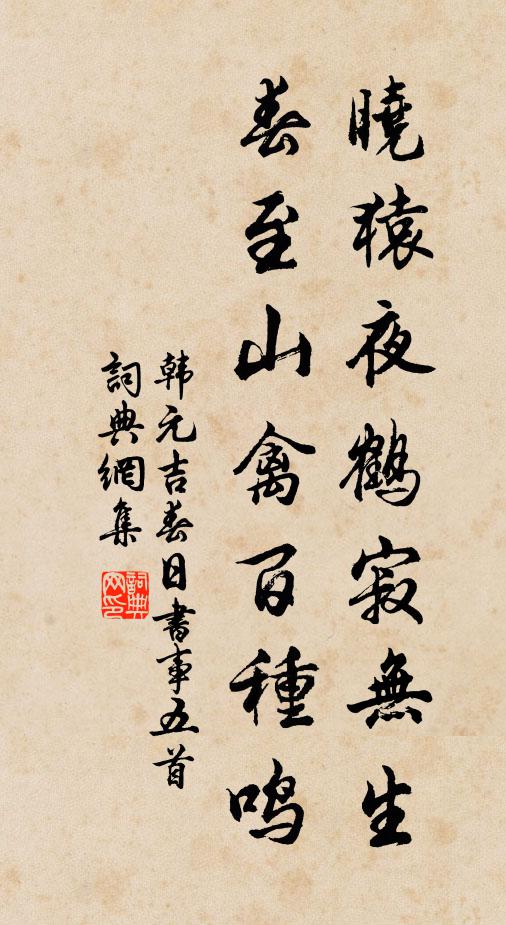 曉猿夜鶴寂無生
春至山禽百種鸣
韩元吉春日書事五首
詞典網集
詞典网印